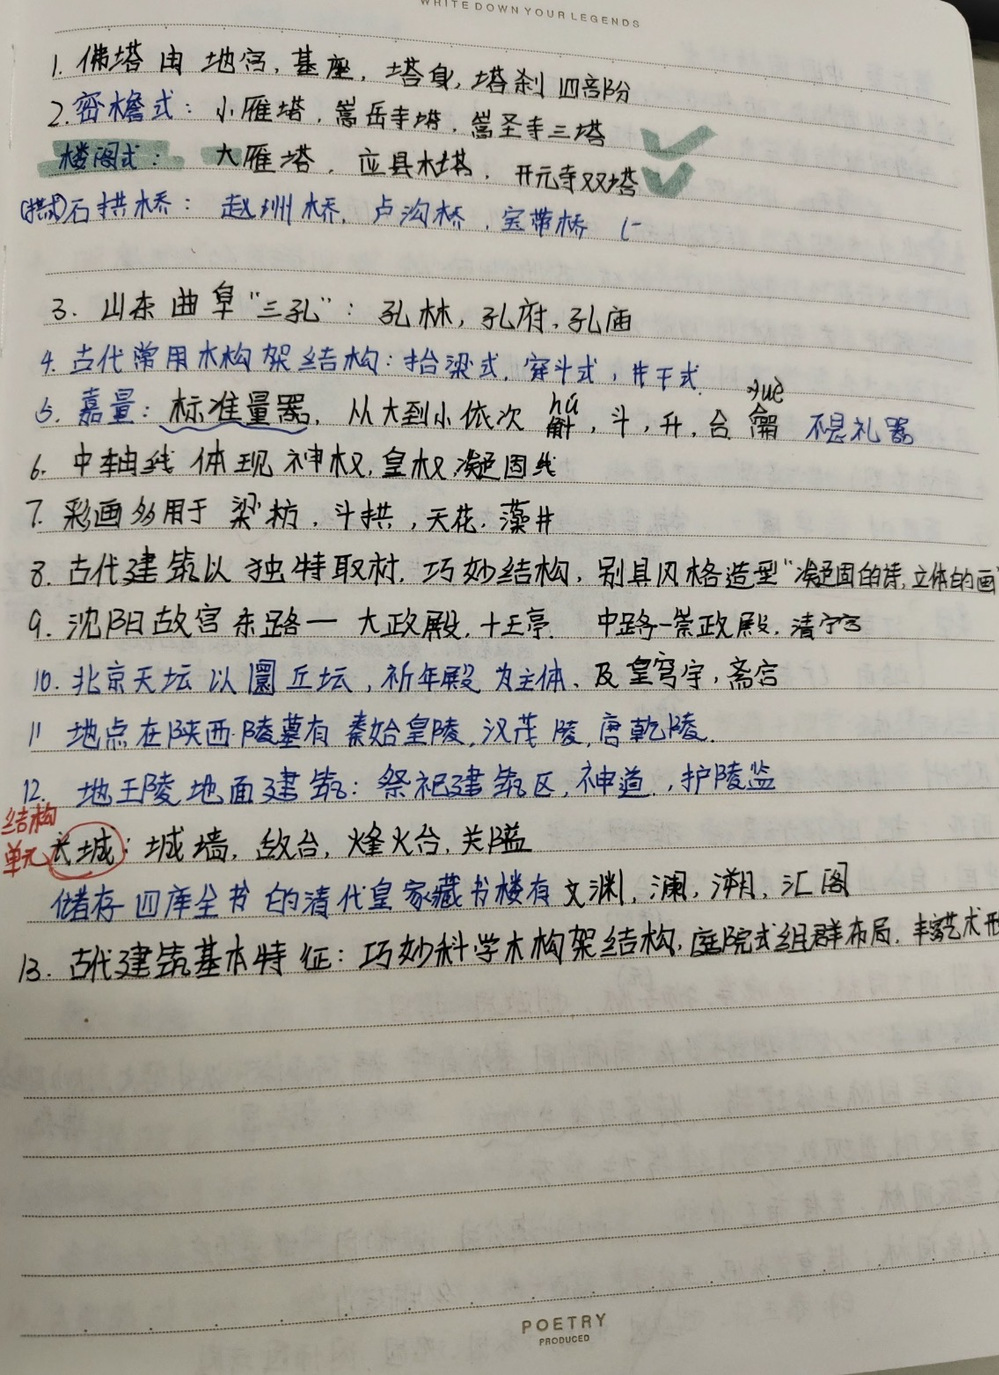 WRITE DOWN YOUR LEGENDS
1. 佛塔由地宫,基座,塔身,塔刹四部份
2.密檐式:小雁塔,嵩岳寺塔,嵩圣寺三塔
楼阁式:大雁塔,应县木塔,开元寺双塔
(拱式)石拱桥:赵州桥,卢沟桥,宝带桥
3. 山东曲阜"三孔":孔林,孔府,孔庙
4. 古代常用木构架结构:抬梁式,穿斗式,井干式
hú yuè
5. 嘉量:标准量器,从大到小依次斛,斗,升,合龠 不是礼器
6. 中轴线体现神权,皇权,凝固线
7. 彩画多用于梁枋,斗拱,天花,藻井
8. 古代建筑以独特取材,巧妙结构,别具风格造型"凝固的诗,立体的画"
9. 沈阳故宫东路一大政殿,十王亭. 中路一崇政殿,清宁宫
10. 北京天坛以圜丘坛,祈年殿为主体,及皇穹宇,斋宫
11 地点在陕西陵墓有秦始皇陵,汉茂陵,唐乾陵.
12. 地王陵地面建筑:祭祀建筑区,神道,护陵监
结构
单元 长城:城墙,敌台,烽火台,关隘
储存四库全书的清代皇家藏书楼有文渊,澜,溯,汇阁
13. 古代建筑基本特征:巧妙科学木构架结构,庭院式组群布局,丰富艺术形
POETRY
PRODUCED